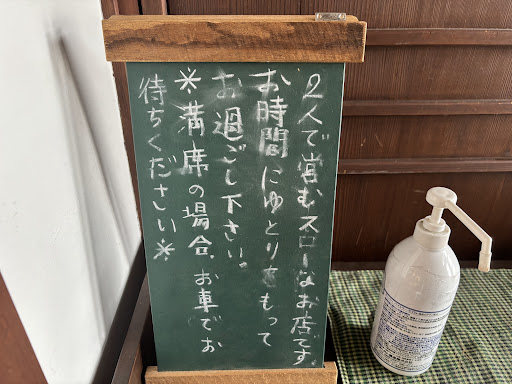 2人で営むスローなお店です。
お時間にゆとりをもって
お過ごし下さい。
*満席の場合、お車でお
待ちください*